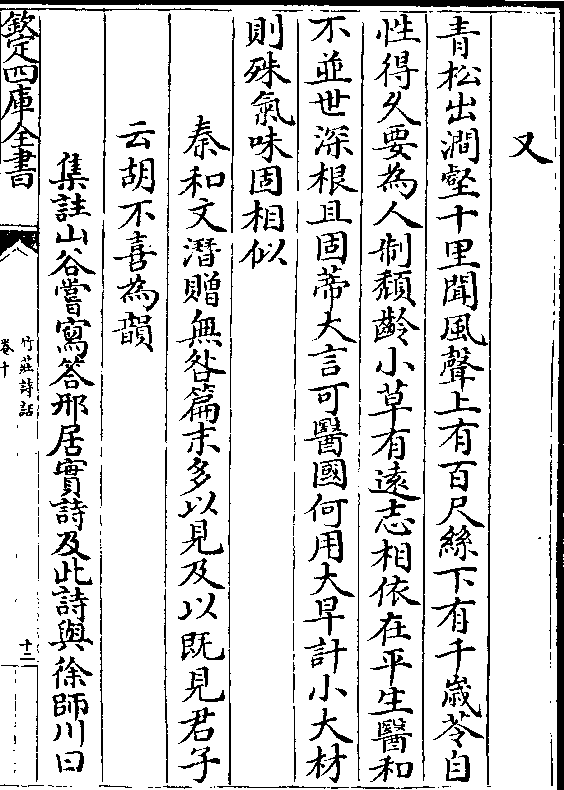 又
青松出澗壑十里聞風聲上有百尺絲下有千歲苓自
性得久要為人制頹齡小草有遠志相依在平生醫和
不並世深根且固蒂大言可醫國何用大早計小大材
則殊氣味固相似
秦和文潛贈無咎篇末多以見及以既見君子
云胡不喜為韻
集註山谷嘗寫答邢居實詩及此詩與徐師川曰
欽定四庫全書
竹莊詩話
卷十
十二